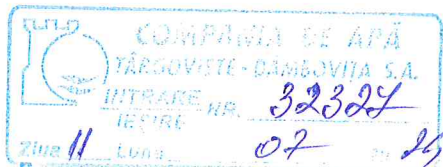 COMPANIA DE APĂ
TÂRGOVIȘTE - DÂMBOVIȚA S.A.
INTRARE NR. 32327
IEȘIRE
ZIUA 11 LUNA 07